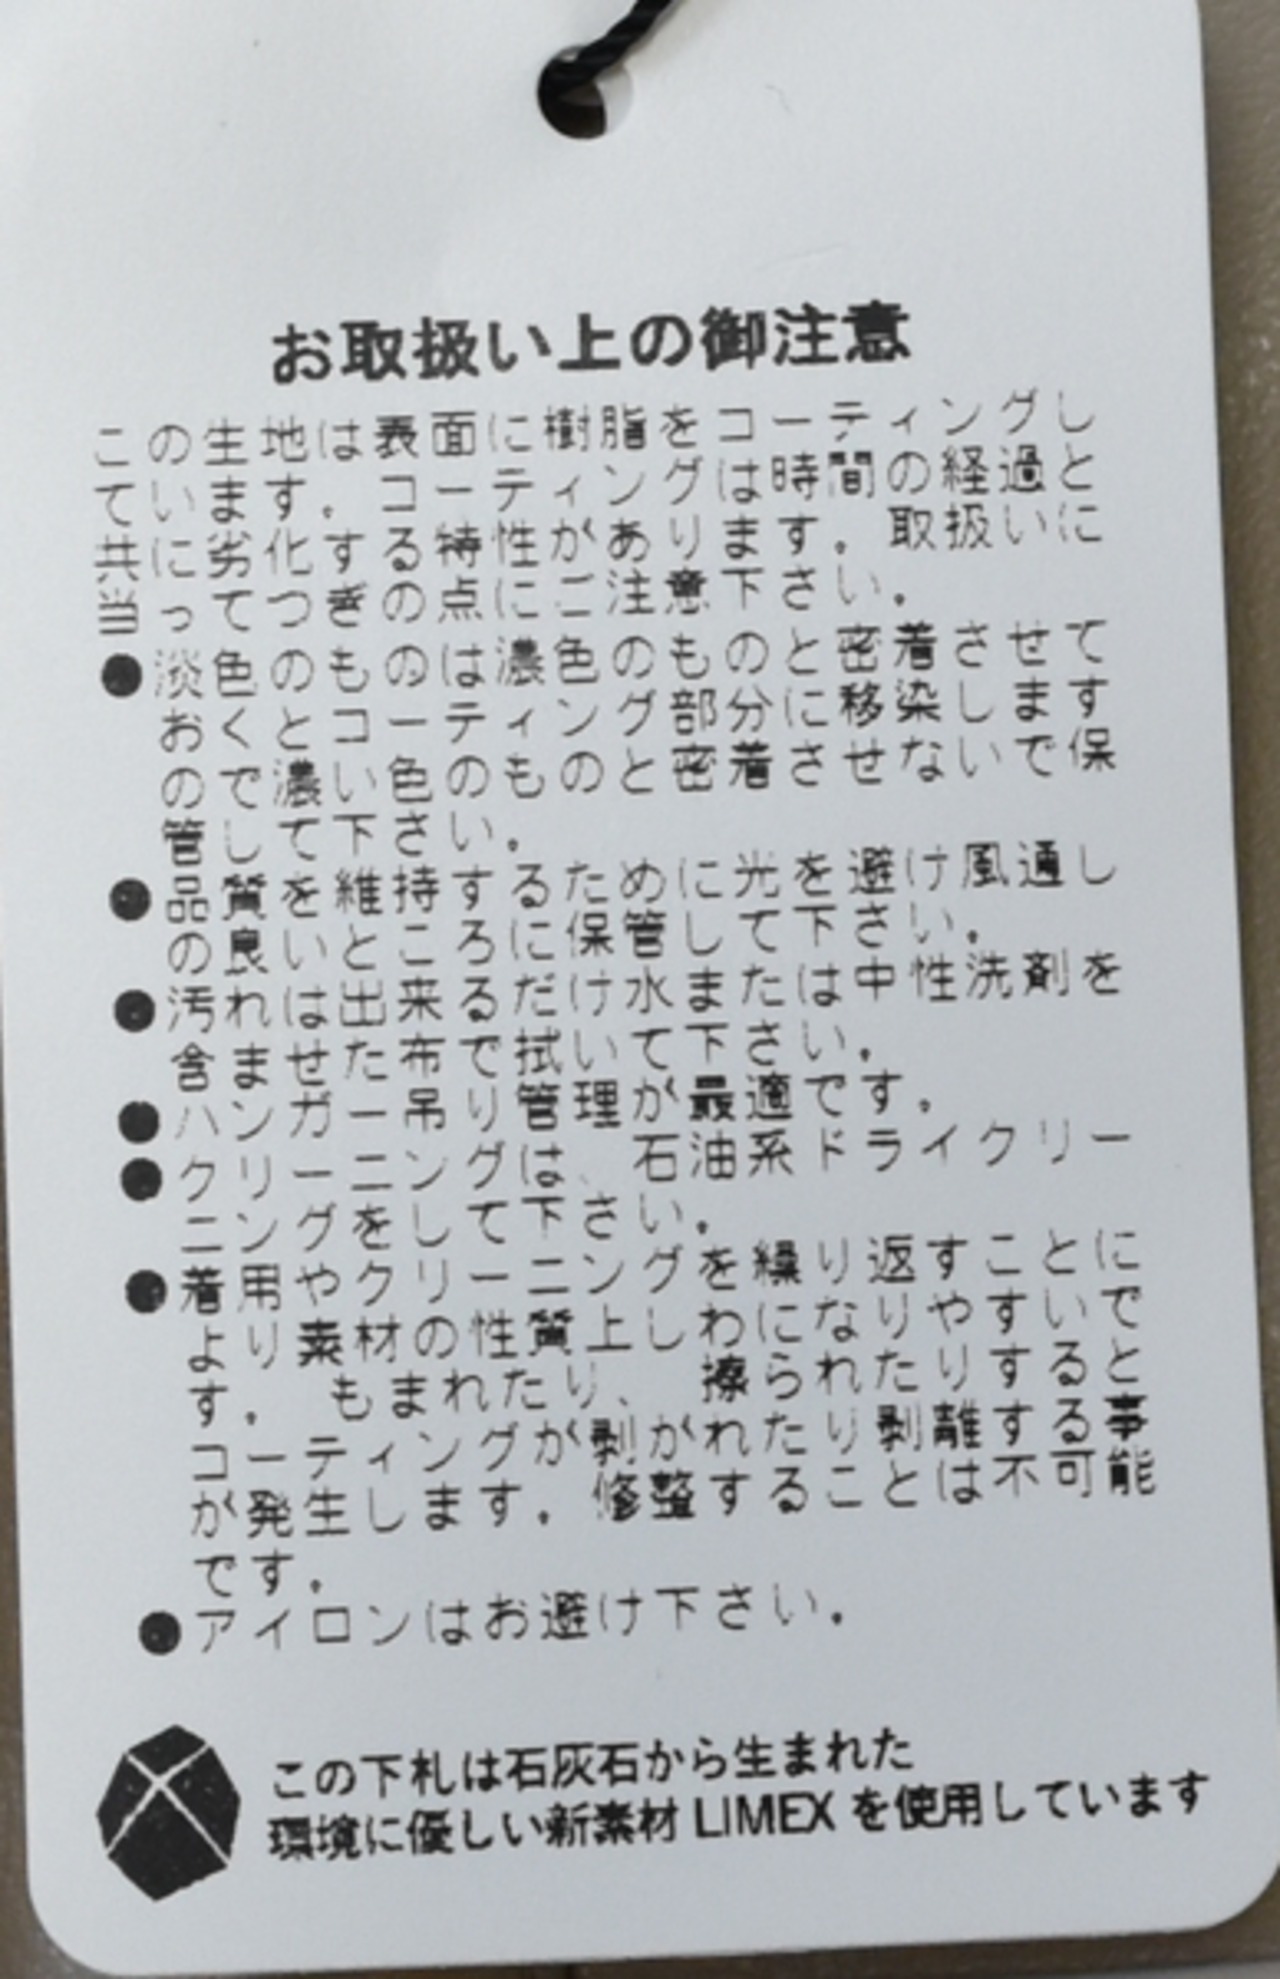 お取扱い上の御注意
この生地は表面に樹脂をコーティングし
ています。コーティングは時間の経過と
共に劣化する特性があります。取扱いに
当ってつぎの点にご注意下さい。
●淡色のものは濃色のものと密着させて
おくとコーティング部分に移染します
ので濃い色のものと密着させないで保
管して下さい。
●品質を維持するために光を避け風通し
の良いところに保管して下さい。
●汚れは出来るだけ水または中性洗剤を
含ませた布で拭いて下さい。
●ハンガー吊り管理が最適です。
●クリーニングは、石油系ドライクリー
ニングをして下さい。
●着用やクリーニングを繰り返すことに
より素材の性質上しわになりやすいで
す。 もまれたり、 擦られたりすると
コーティングが剥がれたり剥離する事
が発生します。修整することは不可能
です。
●アイロンはお避け下さい。
この下札は石灰石から生まれた
環境に優しい新素材 LIMEX を使用しています